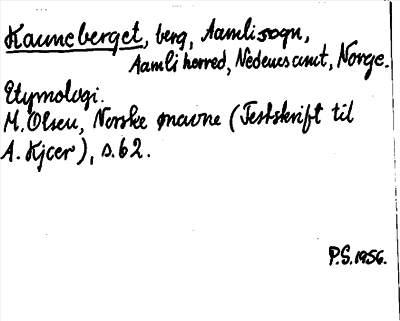 Kauneberget, berg, Aamli sogn,
Aamli herred, Nedenes amt, Norge.
Etymologi.
M. Olsen, Norske ønavne (Festskrift til
A. Kjær), s. 62.
P.S. 1956.